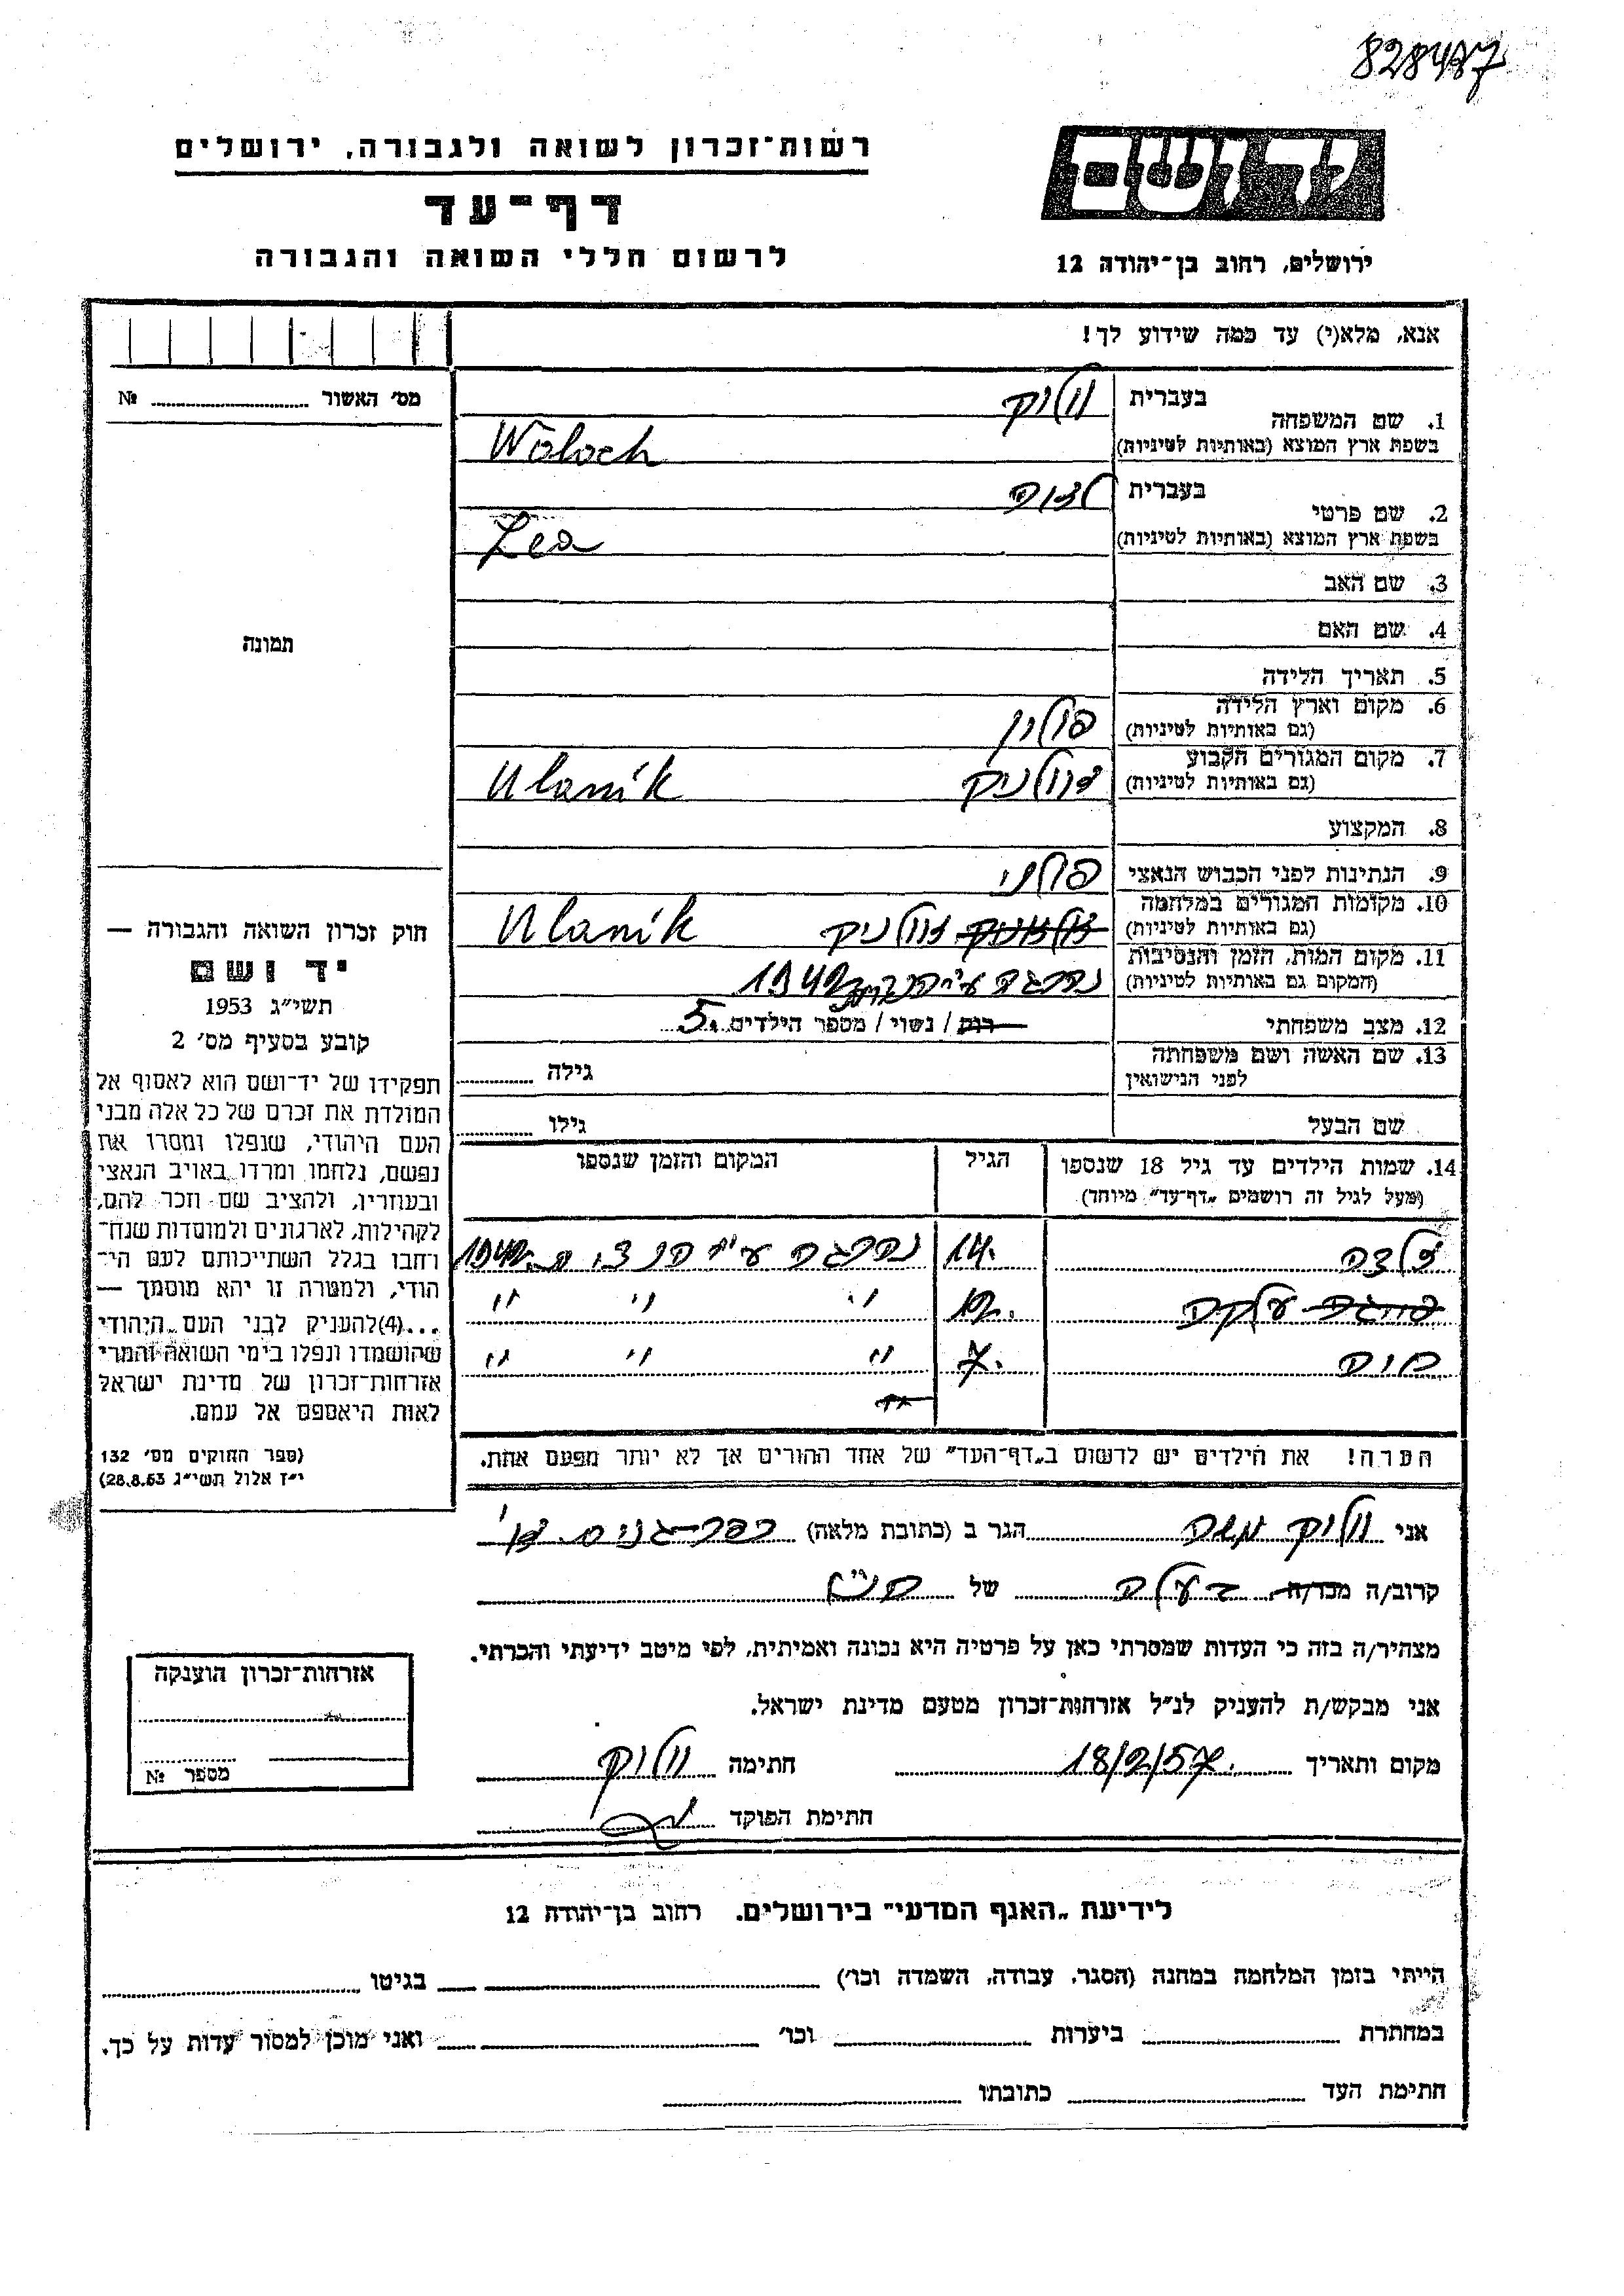 828487
רשות־זכרון לשואה ולגבורה, ירושלים
דף־עד
לרשום חללי השואה והגבורה
יד ושם
ירושלים, רחוב בן־יהודה 12
אנא, מלא(י) עד כמה שידוע לך!
מס׳ האשור № 
1. שם המשפחה בעברית וולוק
בשפת ארץ המוצא (באותיות לטיניות) Woloch
2. שם פרטי בעברית לאה
בשפת ארץ המוצא (באותיות לטיניות) Lea
3. שם האב
4. שם האם
תמונה
5. תאריך הלידה
6. מקום וארץ הלידה פולין
(גם באותיות לטיניות)
7. מקום המגורים הקבוע אולניק Ulanik
(גם באותיות לטיניות)
8. המקצוע
9. הנתינות לפני הכבוש הנאצי פולני
10. מקומות המגורים במלחמה אולניק Ulanik
(גם באותיות לטיניות)
11. מקום המות, הזמן והנסיבות נהרגה ע״י 1942
(המקום גם באותיות לטיניות)
12. מצב משפחתי רוק / נשוי / מספר הילדים 5.
13. שם האשה ושם משפחתה גילה
לפני הנישואין
שם הבעל גילו
14. שמות הילדים עד גיל 18 שנספו הגיל המקום והזמן שנספו
(מעל לגיל זה רושמים „דף־עד" מיוחד)
14. נהרגה ע״י 1942
12. " " "
7. " " "
הערה! את הילדים יש לרשום ב„דף־העד" של אחד ההורים אך לא יותר מפעם אחת.
חוק זכרון השואה והגבורה —
יד ושם
תשי״ג 1953
קובע בסעיף מס׳ 2
תפקידו של יד־ושם הוא לאסוף אל
המולדת את זכרם של כל אלה מבני
העם היהודי, שנפלו ומסרו את
נפשם, נלחמו ומרדו באויב הנאצי
ובעוזריו, ולהציב שם וזכר להם,
לקהילות, לארגונים ולמוסדות שנח־
רחבו בגלל השתייכותם לעם הי־
הודי, ולמטרה זו יהא מוסמך —
...(4) להעניק לבני העם היהודי
שהושמדו ונפלו בימי השואה והמרי
אזרחות־זכרון של מדינת ישראל
לאות היאספם אל עמם.
(ספר החוקים מס׳ 132
י״ז אלול תשי״ג 28.8.53)
אני וולוק משה הגר ב (כתובת מלאה) כפר-גנים א׳
קרוב/ה מכר/ה בעלה של
מצהיר/ה בזה כי העדות שמסרתי כאן על פרטיה היא נכונה ואמיתית, לפי מיטב ידיעתי והכרתי.
אני מבקש/ת להעניק לנ״ל אזרחות־זכרון מטעם מדינת ישראל.
מקום ותאריך 18/2/57. חתימה וולוק
חתימת הפוקד
אזרחות־זכרון הוענקה
מספר №
לידיעת „האגף המדעי" בירושלים. רחוב בן־יהודה 12
הייתי בזמן המלחמה במחנה (הסגר, עבודה, השמדה וכו׳) בגיטו
במחתרת ביערות וכו׳ ואני מוכן למסור עדות על כך.
חתימת העד כתובתו